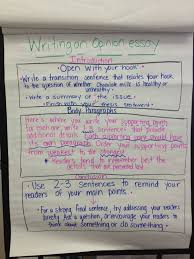 Writing an Opinion essay
Introduction
• Open with your hook •
• Write a transition sentence that relates your hook
to the question of whether chocolate milk is healthy or
unhealthy •
• Write a summary of the issue •
• End with your thesis statement •
Body Paragraphs
Here is where you write your supporting points
for each one, write sentences that provide
additional details. Each supporting point should have
its own paragraph. Order your supporting points
from weakest to the strongest
• Readers tend to remember best the
details that are
Conclusion
• Use 2-3 sentences to remind your
readers of your main points •
• For a strong final sentence, try addressing your readers
directly. Ask a question, or encourage your readers
to think about something or do something •